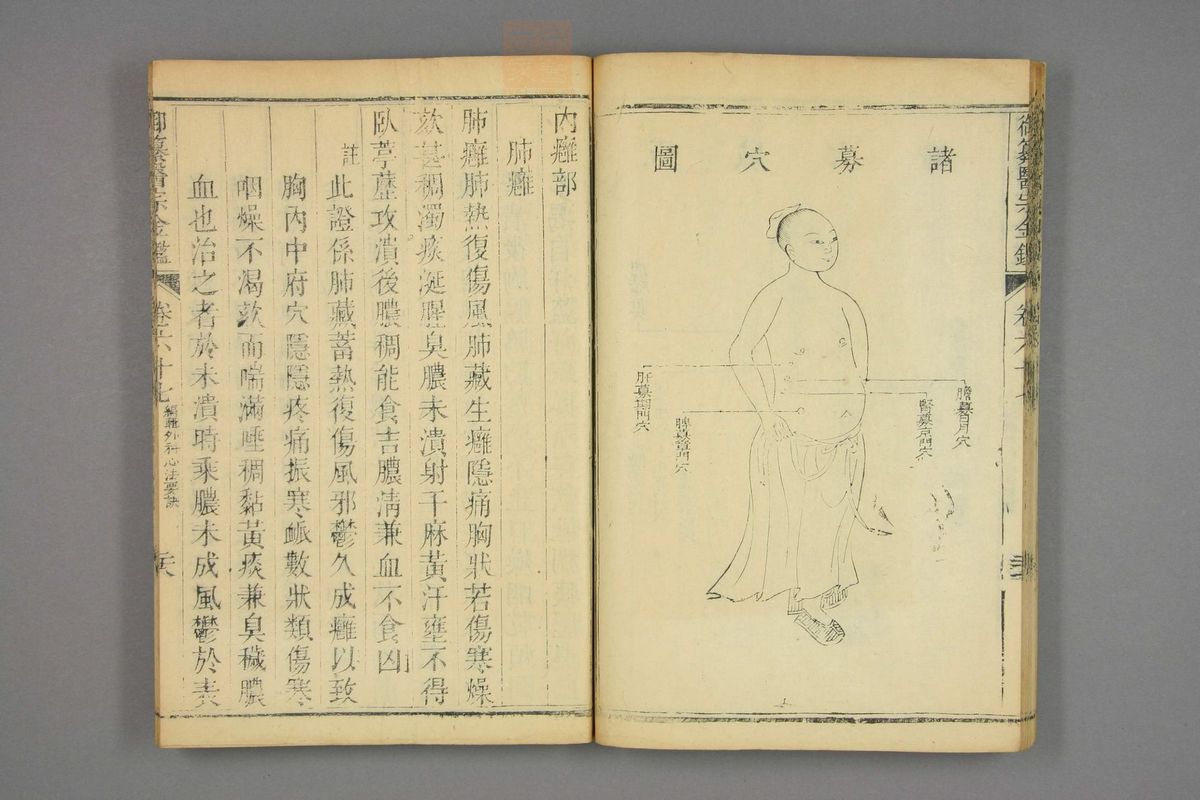 御纂醫宗金鑑
卷六十七
諸募穴圖
膽募日月穴
腎募京門穴
脾募章門穴
肝募期門穴
內癰部
肺癰
肺癰肺熱復傷風肺藏生癰隱痛胸狀若傷寒燥
欬甚稠濁痰涎腥臭膿未潰射干麻黃汗壅不得
臥葶藶攻潰後膿稠能食吉膿淸兼血不食凶
註
此證係肺藏蓄熱復傷風邪鬱久成癰以致
胸內中府穴隱隱疼痛振寒脈數狀類傷寒
咽燥不渴欬而喘滿唾稠黏黃痰兼臭穢膿
血也治之者於未潰時乘膿未成風鬱於表
御纂醫宗金鑑
卷六十七
編輯外科心法要訣